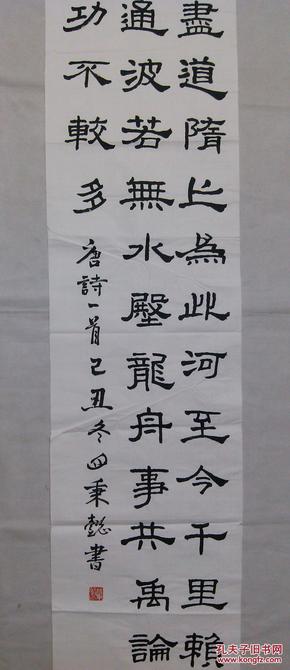 盡道隋亡為此河至今千里賴
通波若無水殿龍舟事共禹論
功不較多
唐詩一首己丑冬四秉懿書
孔夫子旧书网